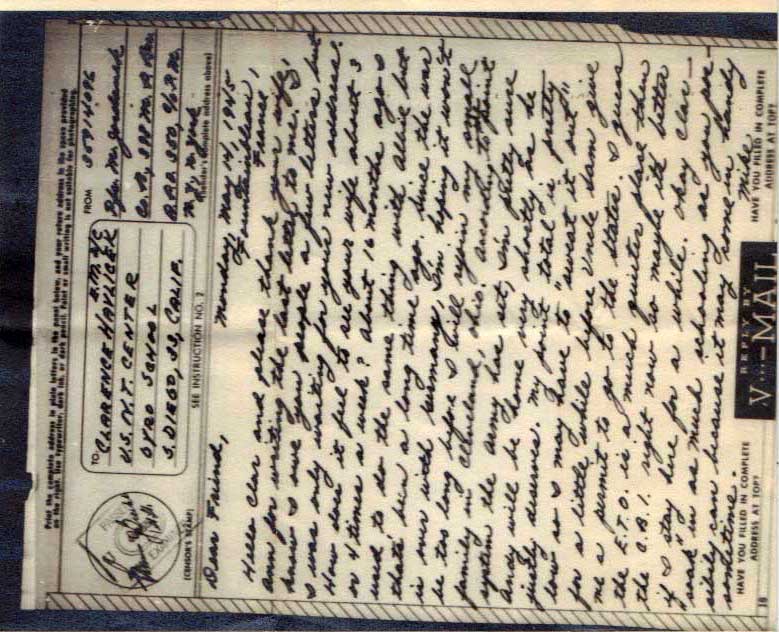 Print the complete address in plain letters in the panel below, and your return address in the space provided
on the right. Use typewriter, dark ink, or dark pencil. Faint or small writing is not suitable for photographing.
TO
CLARENCE HAVLICEK E.M. 3/C
U.S.N.T. CENTER
GYRO SCHOOL
S. DIEGO, 34, CALIF.
FROM
35914096
Pfc. M.
Co. A, 398
A.P.O. 350, c/o P.M.
N.Y. N. York
(Sender's complete address above)
(CENSOR'S STAMP)
SEE INSTRUCTION NO. 2
Monday, May 14, 1945
Fountainbleau,
France
Dear Friend,
Hello Clar and please thank your wife,
Ann for writing the last letter to me. I
know I owe you people a few letters but
I was only waiting for your new address.
How does it feel to see your wife about 3
or 4 times a week? About 16 months ago I
used to do the same thing with Allie but
that's been a long time ago. Since the war
is over with Germany, I'm hoping it won't
be too long before I will rejoin my small
family in Cleveland, Ohio. According to point
system the army has set, I'm pretty sure
Andy will be home very shortly as he
justly deserves. My point total is pretty
low so I may have to "sweat it out"
for a little while before Uncle Sam give
me a permit to go to the States. I guess
the E.T.O. is a much quieter place than
the C.B.I. right now so maybe its better
if I stay here for a while. Okay Clar —
"soak" in as much schooling as you pos-
sibly can because it may come in handy
sometime.
Mike
HAVE YOU FILLED IN COMPLETE
ADDRESS AT TOP?
REPLY BY
V···—MAIL
HAVE YOU FILLED IN COMPLETE
ADDRESS AT TOP?